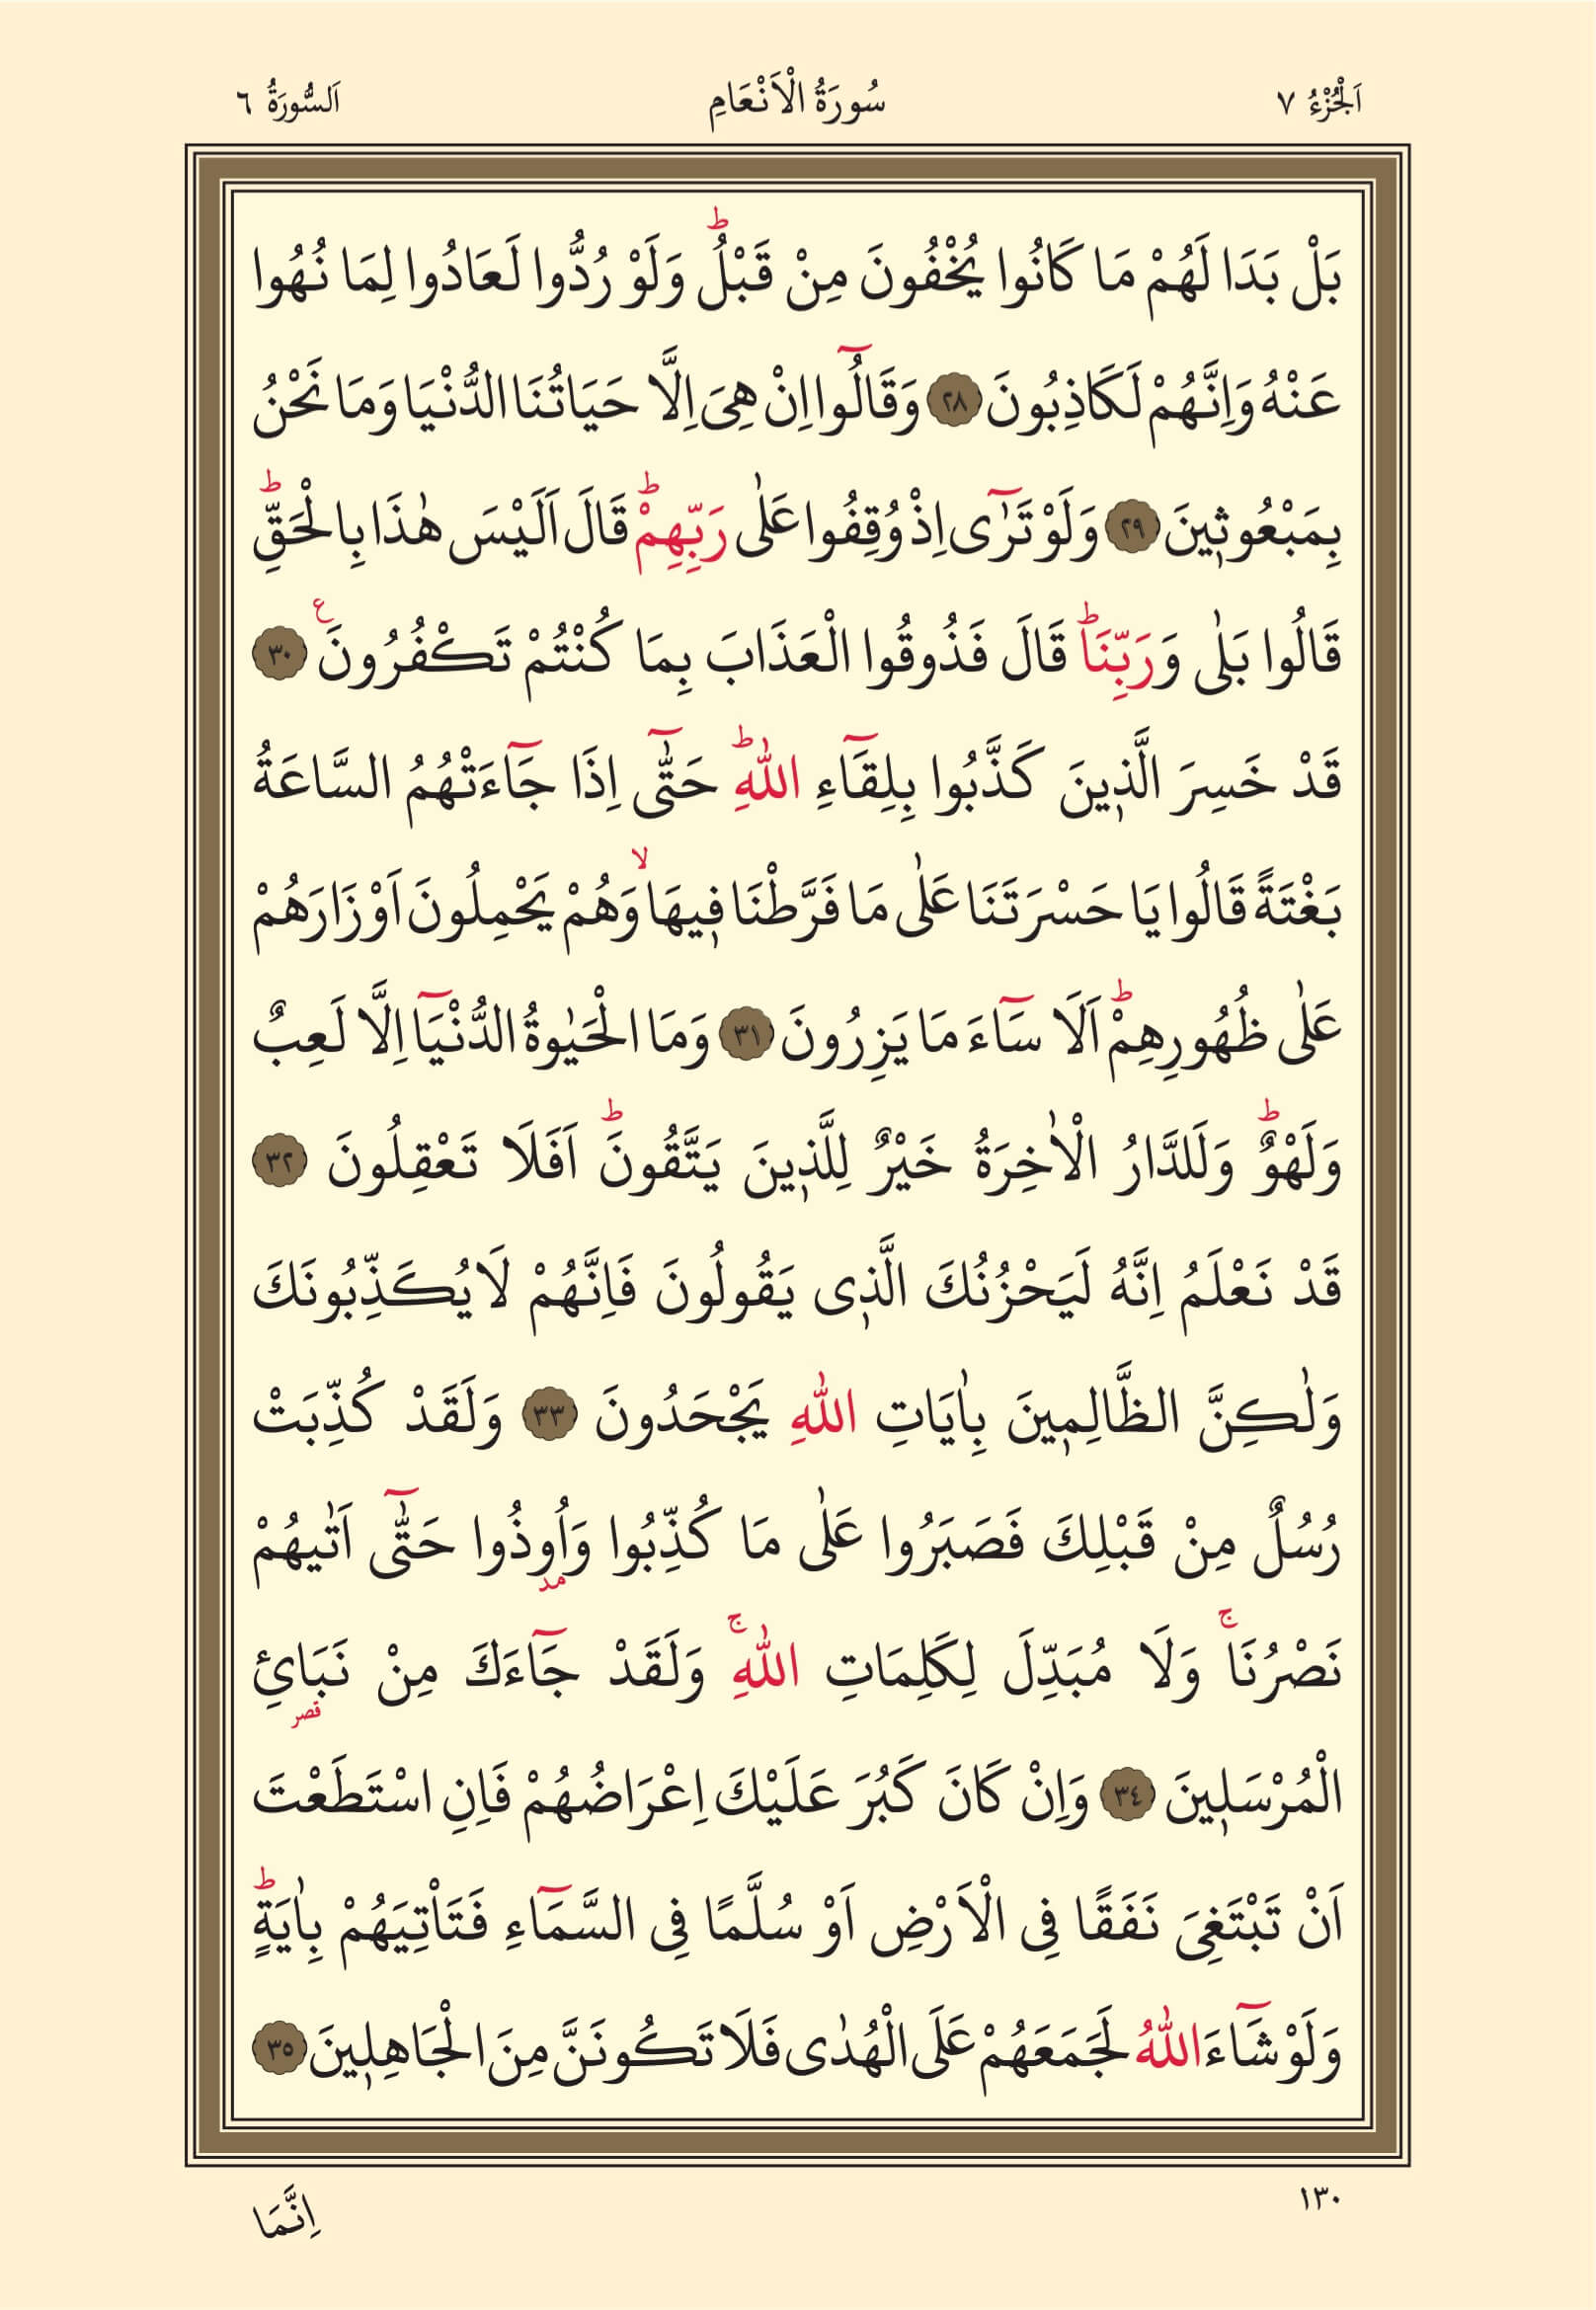 اَلْجُزْءُ ٧ سُورَةُ الْاَنْعَامِ اَلسُّورَةُ ٦
بَلْ بَدَا لَهُمْ مَا كَانُوا يُخْفُونَ مِنْ قَبْلُۜ وَلَوْ رُدُّوا لَعَادُوا لِمَا نُهُوا
عَنْهُ وَاِنَّهُمْ لَكَاذِبُونَ ٢٨ وَقَالُٓوا اِنْ هِىَ اِلَّا حَيَاتُنَا الدُّنْيَا وَمَا نَحْنُ
بِمَبْعُوثٖينَ ٢٩ وَلَوْ تَرٰٓى اِذْ وُقِفُوا عَلٰى رَبِّهِمْؕ قَالَ اَلَيْسَ هٰذَا بِالْحَقِّؕ
قَالُوا بَلٰى وَرَبِّنَاؕ قَالَ فَذُوقُوا الْعَذَابَ بِمَا كُنْتُمْ تَكْفُرُونَ ع ٣٠
قَدْ خَسِرَ الَّذٖينَ كَذَّبُوا بِلِقَٓاءِ اللّٰهِؕ حَتّٰٓى اِذَا جَٓاءَتْهُمُ السَّاعَةُ
بَغْتَةً قَالُوا يَا حَسْرَتَنَا عَلٰى مَا فَرَّطْنَا فٖيهَاۙ وَهُمْ يَحْمِلُونَ اَوْزَارَهُمْ
عَلٰى ظُهُورِهِمْؕ اَلَا سَٓاءَ مَا يَزِرُونَ ٣١ وَمَا الْحَيٰوةُ الدُّنْيَٓا اِلَّا لَعِبٌ
وَلَهْوٌؕ وَلَلدَّارُ الْاٰخِرَةُ خَيْرٌ لِلَّذٖينَ يَتَّقُونَؕ اَفَلَا تَعْقِلُونَ ٣٢
قَدْ نَعْلَمُ اِنَّهُ لَيَحْزُنُكَ الَّذٖى يَقُولُونَ فَاِنَّهُمْ لَا يُكَذِّبُونَكَ
وَلٰكِنَّ الظَّالِمٖينَ بِاٰيَاتِ اللّٰهِ يَجْحَدُونَ ٣٣ وَلَقَدْ كُذِّبَتْ
رُسُلٌ مِنْ قَبْلِكَ فَصَبَرُوا عَلٰى مَا كُذِّبُوا وَاُوذُوا مد حَتّٰٓى اَتٰيهُمْ
نَصْرُنَاۚ وَلَا مُبَدِّلَ لِكَلِمَاتِ اللّٰهِۚ وَلَقَدْ جَٓاءَكَ مِنْ نَبَائِ قصر
الْمُرْسَلٖينَ ٣٤ وَاِنْ كَانَ كَبُرَ عَلَيْكَ اِعْرَاضُهُمْ فَاِنِ اسْتَطَعْتَ
اَنْ تَبْتَغِىَ نَفَقًا فِى الْاَرْضِ اَوْ سُلَّمًا فِى السَّمَٓاءِ فَتَاْتِيَهُمْ بِاٰيَةٍؕ
وَلَوْ شَٓاءَ اللّٰهُ لَجَمَعَهُمْ عَلَى الْهُدٰى فَلَا تَكُونَنَّ مِنَ الْجَاهِلٖينَ ٣٥
١٣٠ اِنَّمَا